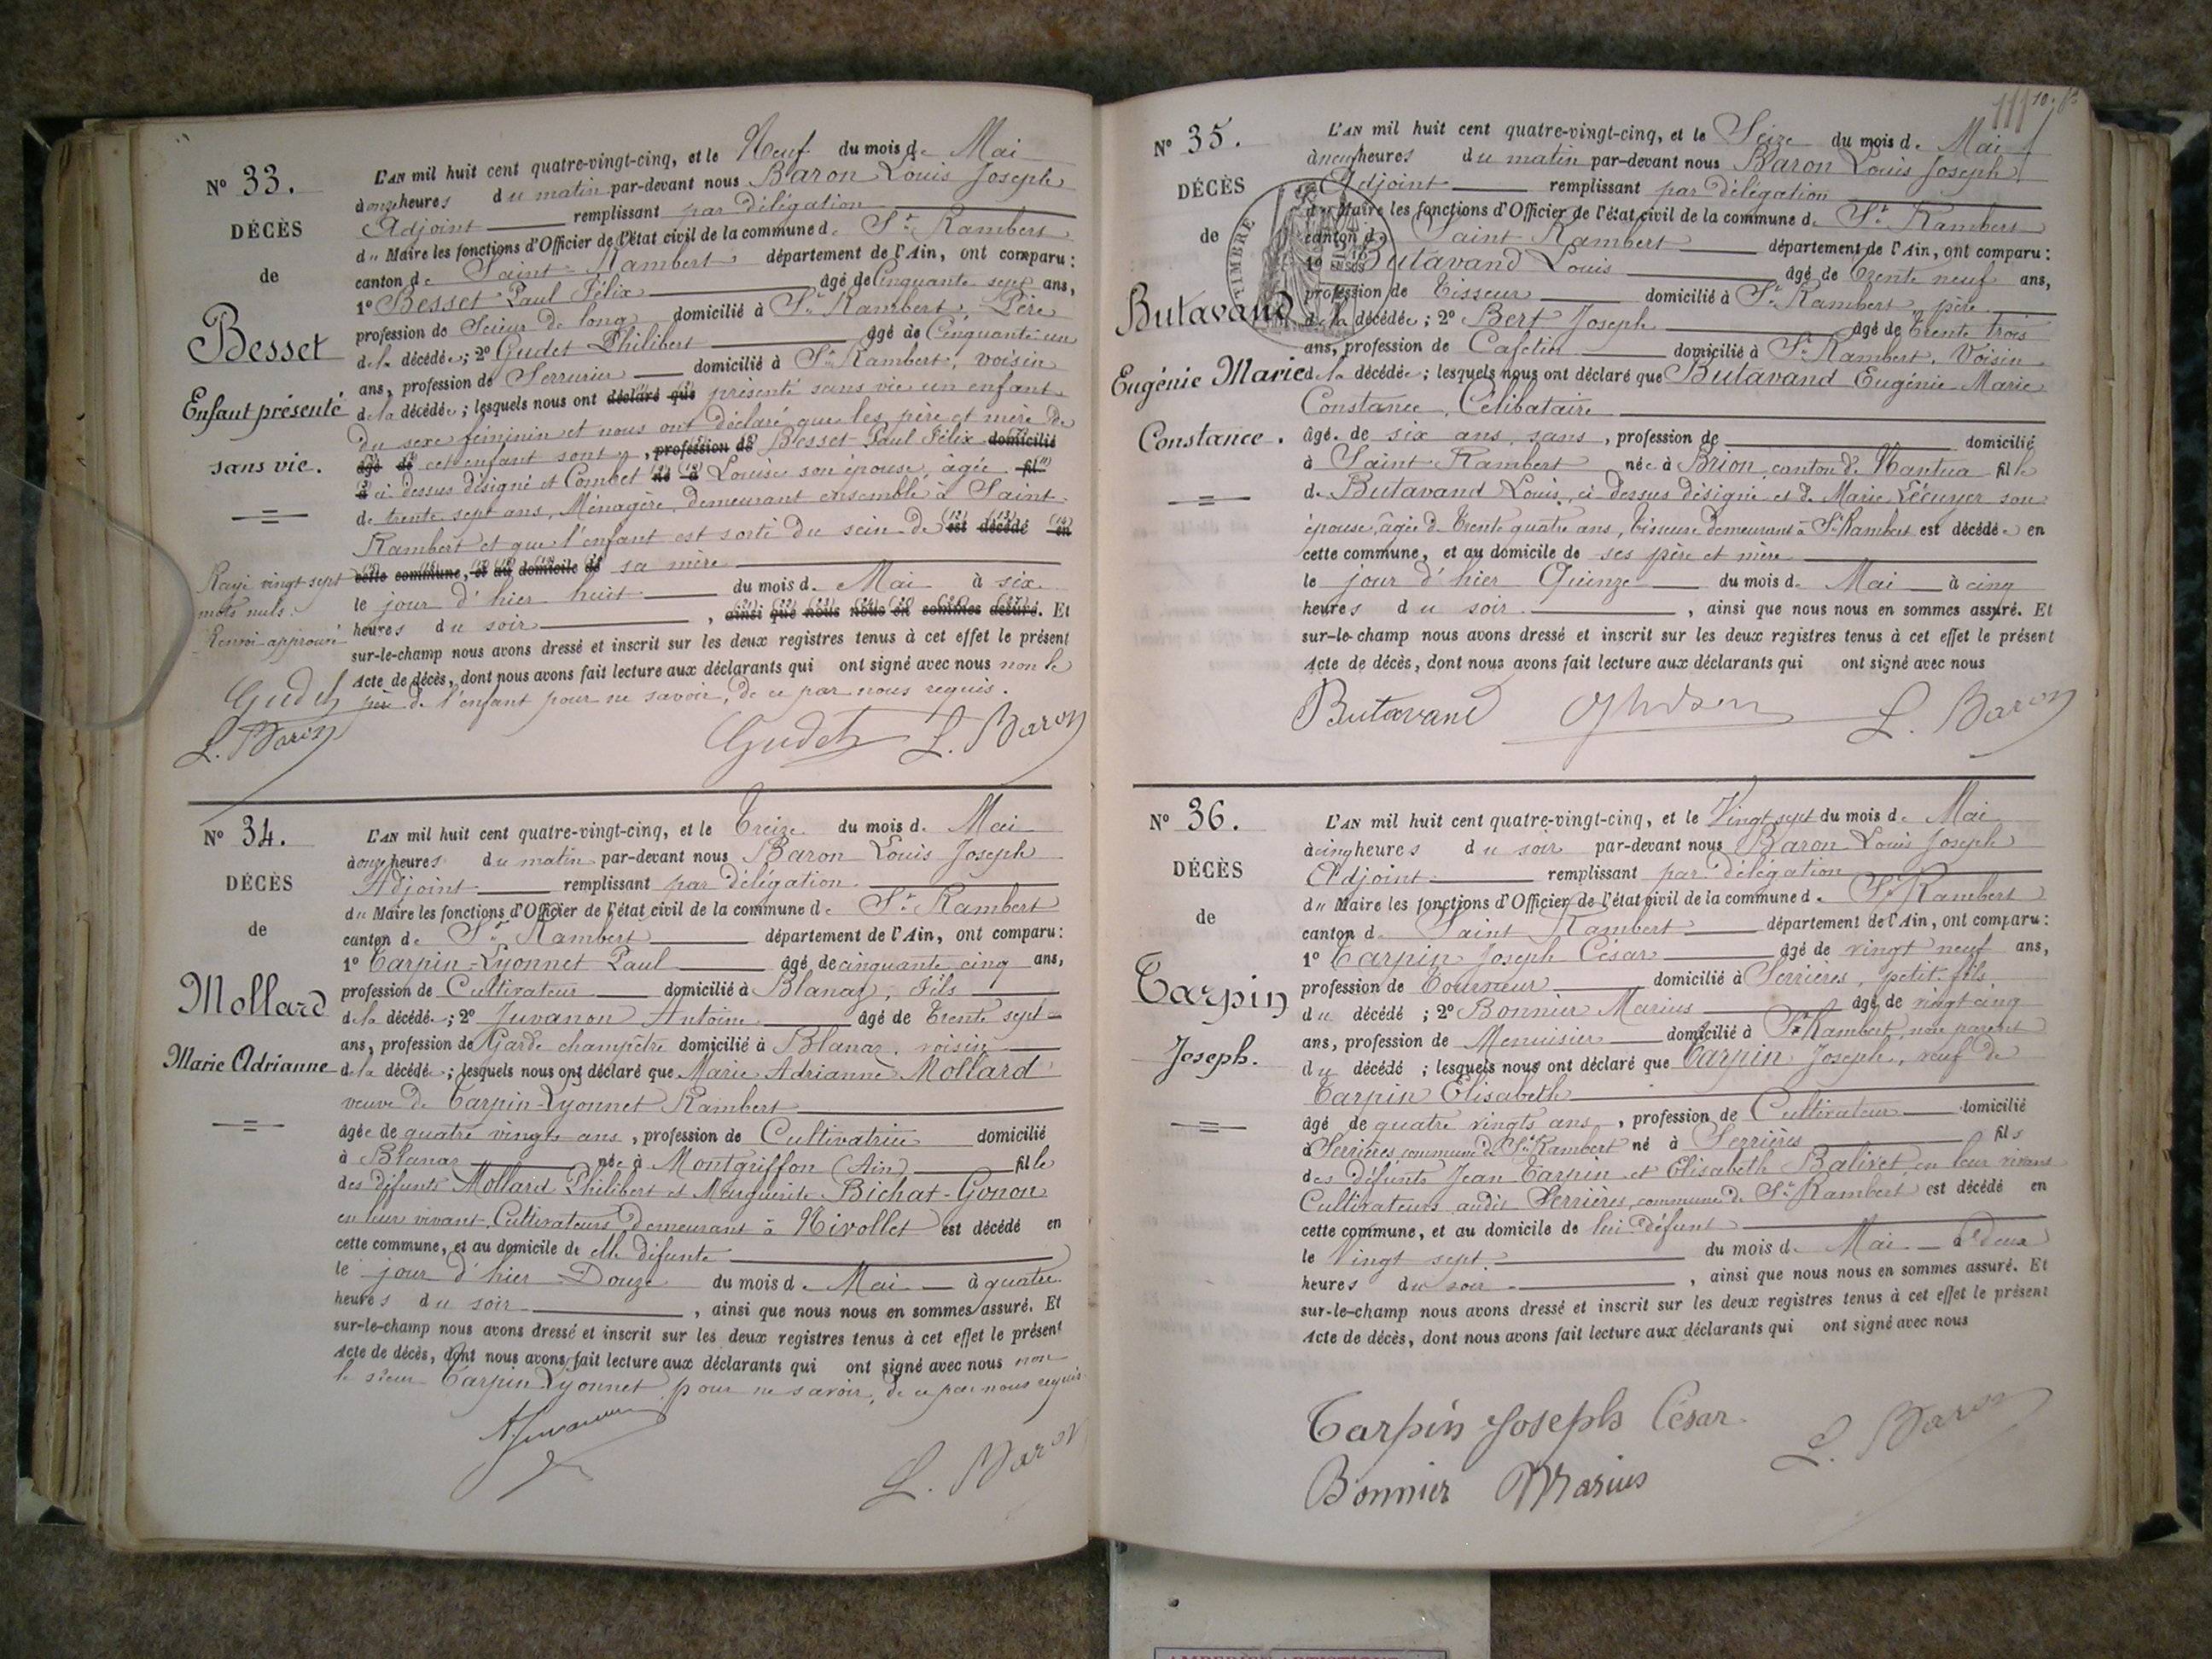 N° 33.
DÉCÈS
de
Besset
Enfant présenté
sans vie.
Rayé vingt sept
mots nuls.
Renvoi approuvé
Gudet
L. Baron
L'AN mil huit cent quatre-vingt-cinq, et le Neuf du mois de Mai
à onze heures du matin par-devant nous Baron Louis Joseph
Adjoint remplissant par délégation
du Maire les fonctions d'Officier de l'état civil de la commune de St Rambert
canton de Saint Rambert département de l'Ain, ont comparu :
1° Besset Paul Félix âgé de Cinquante sept ans,
profession de Scieur de long domicilié à St Rambert, Père
de la décédée ; 2° Gudet Philibert âgé de Cinquante un
ans, profession de Serrurier domicilié à St Rambert, voisin
de la décédée ; lesquels nous ont déclaré que présenté sans vie un enfant
du sexe féminin et nous ont déclaré que les père et mère de
âgé de cet enfant sont , profession de Besset Paul Félix domicilié
à ci dessus désigné et Combet né à Louise son épouse, âgée fil
de trente sept ans, Ménagère, demeurant ensemble à Saint
Rambert et que l'enfant est sorti du sein de est décédé en
cette commune, et au domicile de sa mère
le jour d'hier huit du mois de Mai à six
heures du soir , ainsi que nous nous en sommes assuré. Et
sur-le-champ nous avons dressé et inscrit sur les deux registres tenus à cet effet le présent
Acte de décès, dont nous avons fait lecture aux déclarants qui ont signé avec nous non le
père de l'enfant pour ne savoir, de ce par nous requis.
Gudet L. Baron
N° 34.
DÉCÈS
de
Mollard
Marie Adrianne
L'AN mil huit cent quatre-vingt-cinq, et le Treize du mois de Mai
à onze heures du matin par-devant nous Baron Louis Joseph
Adjoint remplissant par délégation
du Maire les fonctions d'Officier de l'état civil de la commune de St Rambert
canton de St Rambert département de l'Ain, ont comparu :
1° Tarpin-Lyonnet Paul âgé de cinquante cinq ans,
profession de Cultivateur domicilié à Blanaz, Fils
de la décédée ; 2° Juvanon Antoine âgé de Trente sept
ans, profession de Garde champêtre domicilié à Blanaz, voisin
de la décédée ; lesquels nous ont déclaré que Marie Adrianne Mollard
veuve de Tarpin-Lyonnet Rambert
âgée de quatre vingts ans , profession de Cultivatrice domicilié
à Blanaz née à Montgriffon (Ain) fille
des défunts Mollard Philibert et Marguerite Bichat-Gonon
en leur vivant, Cultivateurs demeurant à Nivollet est décédé en
cette commune, et au domicile de elle défunte
le jour d'hier Douze du mois de Mai à quatre
heures du soir , ainsi que nous nous en sommes assuré. Et
sur-le-champ nous avons dressé et inscrit sur les deux registres tenus à cet effet le présent
Acte de décès, dont nous avons fait lecture aux déclarants qui ont signé avec nous non
le sieur Tarpin-Lyonnet pour ne savoir, de ce par nous requis
A. Juvanon
L. Baron
N° 35.
DÉCÈS
de
Butavand
Eugénie Marie
Constance.
TIMBRE
L'AN mil huit cent quatre-vingt-cinq, et le Seize du mois de Mai
à neuf heures du matin par-devant nous Baron Louis Joseph
Adjoint remplissant par délégation
du Maire les fonctions d'Officier de l'état civil de la commune de St Rambert
canton de Saint Rambert département de l'Ain, ont comparu :
1° Butavand Louis âgé de Trente neuf ans,
profession de Tisseur domicilié à St Rambert père
de la décédée ; 2° Bert Joseph âgé de Trente trois
ans, profession de Cafetier domicilié à St Rambert, Voisin
de la décédée ; lesquels nous ont déclaré que Butavand Eugénie Marie
Constance, Célibataire
âgée de six ans, sans , profession de domicilié
à Saint Rambert née à Brion, canton de Nantua fille
de Butavand Louis, ci dessus désigné et de Marie Lécuyer son
épouse, âgée de Trente quatre ans, Tisseuse demeurant à St Rambert est décédée en
cette commune, et au domicile de ses père et mère
le jour d'hier Quinze du mois de Mai à cinq
heures du soir , ainsi que nous nous en sommes assuré. Et
sur-le-champ nous avons dressé et inscrit sur les deux registres tenus à cet effet le présent
Acte de décès, dont nous avons fait lecture aux déclarants qui ont signé avec nous
Butavand L. Baron
N° 36.
DÉCÈS
de
Tarpin
Joseph.
L'AN mil huit cent quatre-vingt-cinq, et le Vingt sept du mois de Mai
à cinq heures du soir par-devant nous Baron Louis Joseph
Adjoint remplissant par délégation
du Maire les fonctions d'Officier de l'état civil de la commune de St Rambert
canton de Saint Rambert département de l'Ain, ont comparu :
1° Tarpin Joseph César âgé de vingt neuf ans,
profession de Tourneur domicilié à Serrières, petit fils
du décédé ; 2° Bonnier Marius âgé de vingt cinq
ans, profession de Menuisier domicilié à St Rambert, non parent
du décédé ; lesquels nous ont déclaré que Tarpin Joseph, veuf de
Tarpin Elisabeth
âgé de quatre vingts ans , profession de Cultivateur domicilié
à Serrières commune de St Rambert né à Serrières fils
des défunts Jean Tarpin et Elisabeth Balivet en leur vivant
Cultivateurs audit Serrières, commune de St Rambert est décédé en
cette commune, et au domicile de lui défunt
le Vingt sept du mois de Mai à deux
heures du soir , ainsi que nous nous en sommes assuré. Et
sur-le-champ nous avons dressé et inscrit sur les deux registres tenus à cet effet le présent
Acte de décès, dont nous avons fait lecture aux déclarants qui ont signé avec nous
Tarpin Joseph César L. Baron
Bonnier Marius